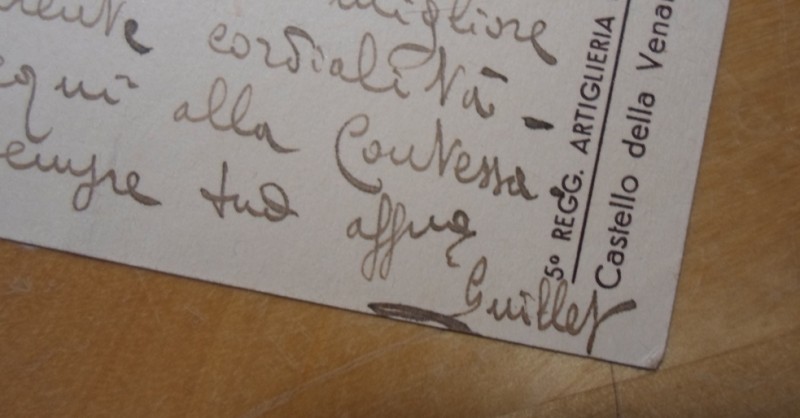 migliore
cordialità -
alla Contessa
sempre tuo affmo
Guillet
5º REGG. ARTIGLIERIA
Castello della Vena